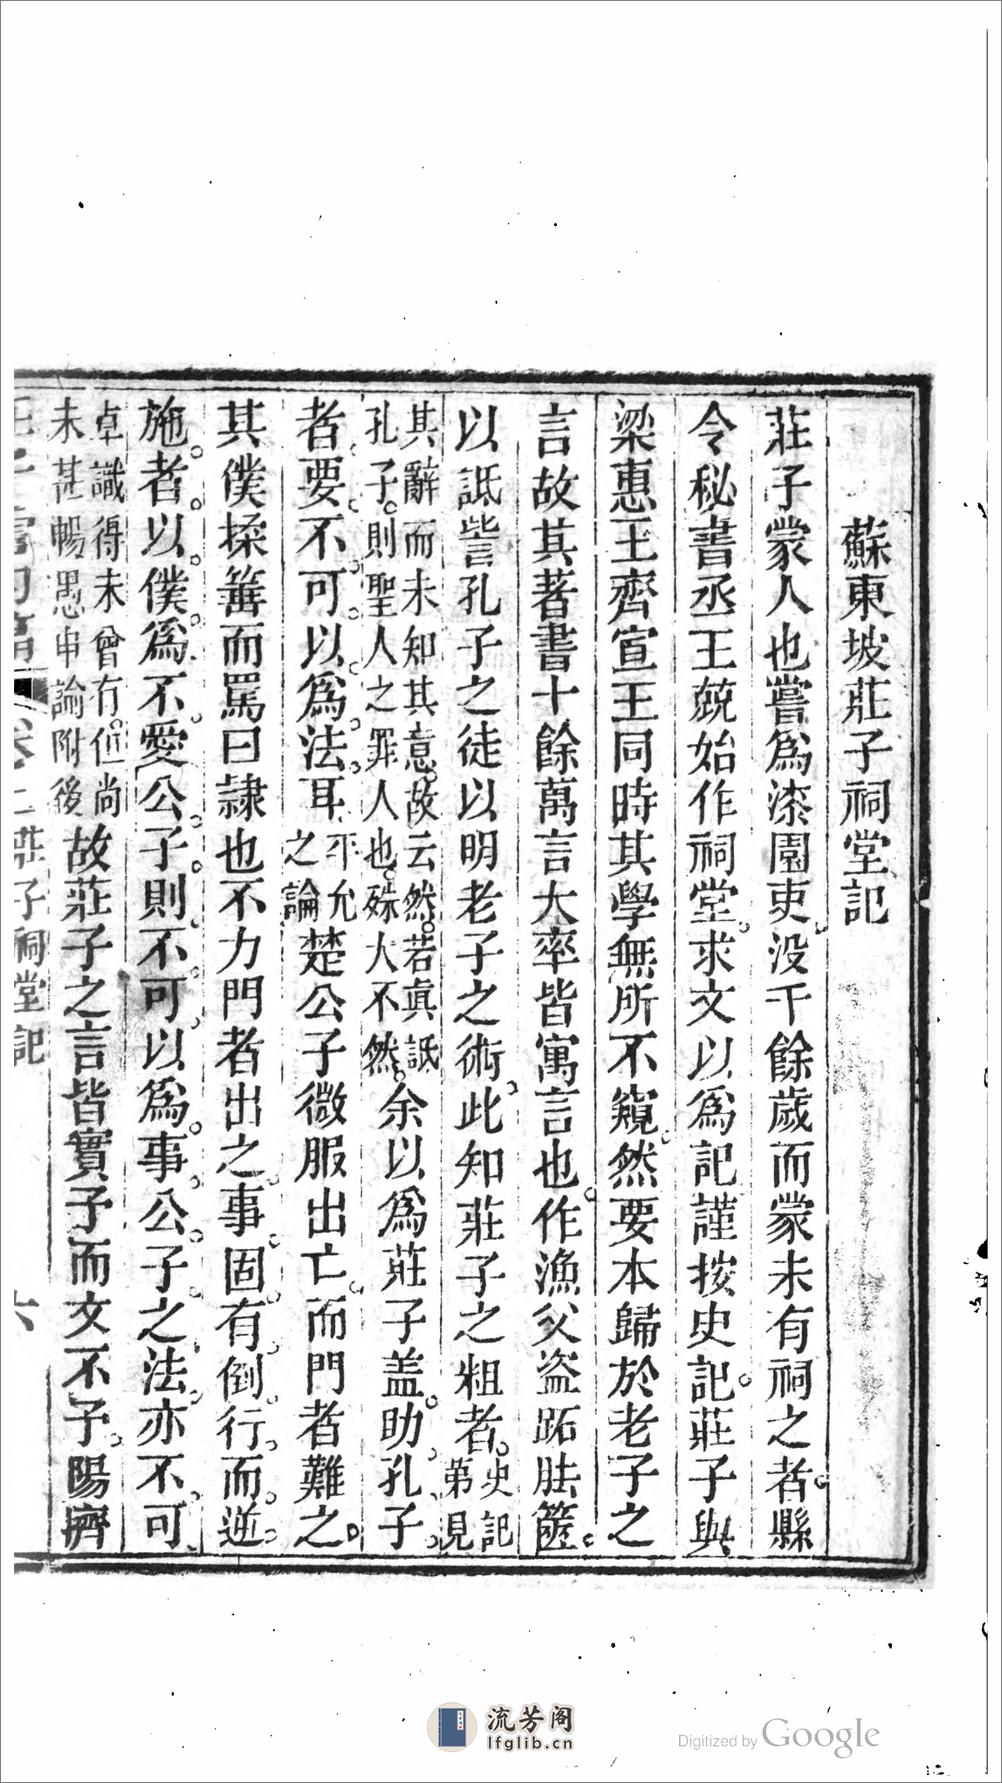 蘇東坡莊子祠堂記
莊子蒙人也嘗爲漆園吏。没千餘歲而蒙未有祠之者。縣
令秘書丞王兢始作祠堂。求文以爲記謹按史記。莊子與
梁惠王齊宣王同時其學無所不窺。然要本歸於老子之
言故其著書十餘萬言大率皆寓言也。作漁父盜跖胠篋。
以詆訾孔子之徒以明老子之術。此知莊子之粗者。史記
第見
其辭而未知其意。故云然。若真詆
孔子。則聖人之罪人也。殊大不然。余以爲莊子盖助孔子
者要不可以爲法耳。平允
之論楚公子微服出亡。而門者難之。
其僕揉箠而罵曰隷也不力門者出之事固有倒行而逆
施。者以僕爲不愛公子則不可以爲事公子之法亦不可
卓識得未曾有。但尚
未甚暢愚申論附後故莊子之言皆實予而文不予。陽擠
莊子祠堂記
六
流芳阁
lfglib.cn
Digitized by Google